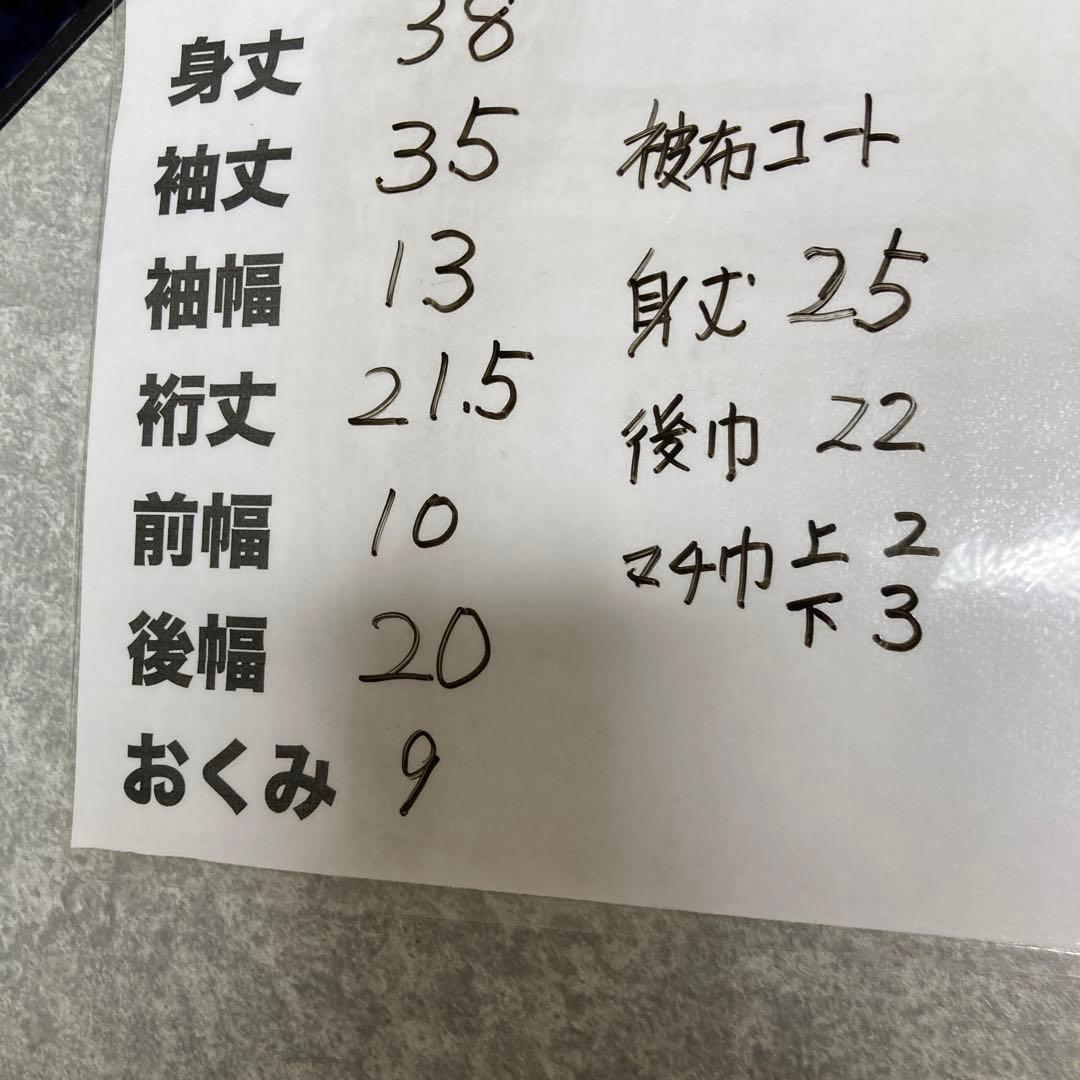 身丈 38
袖丈 35
袖幅 13
裄丈 21.5
前幅 10
後幅 20
おくみ 9
被布コート
身丈 25
後巾 22
マチ巾 上 2
下 3